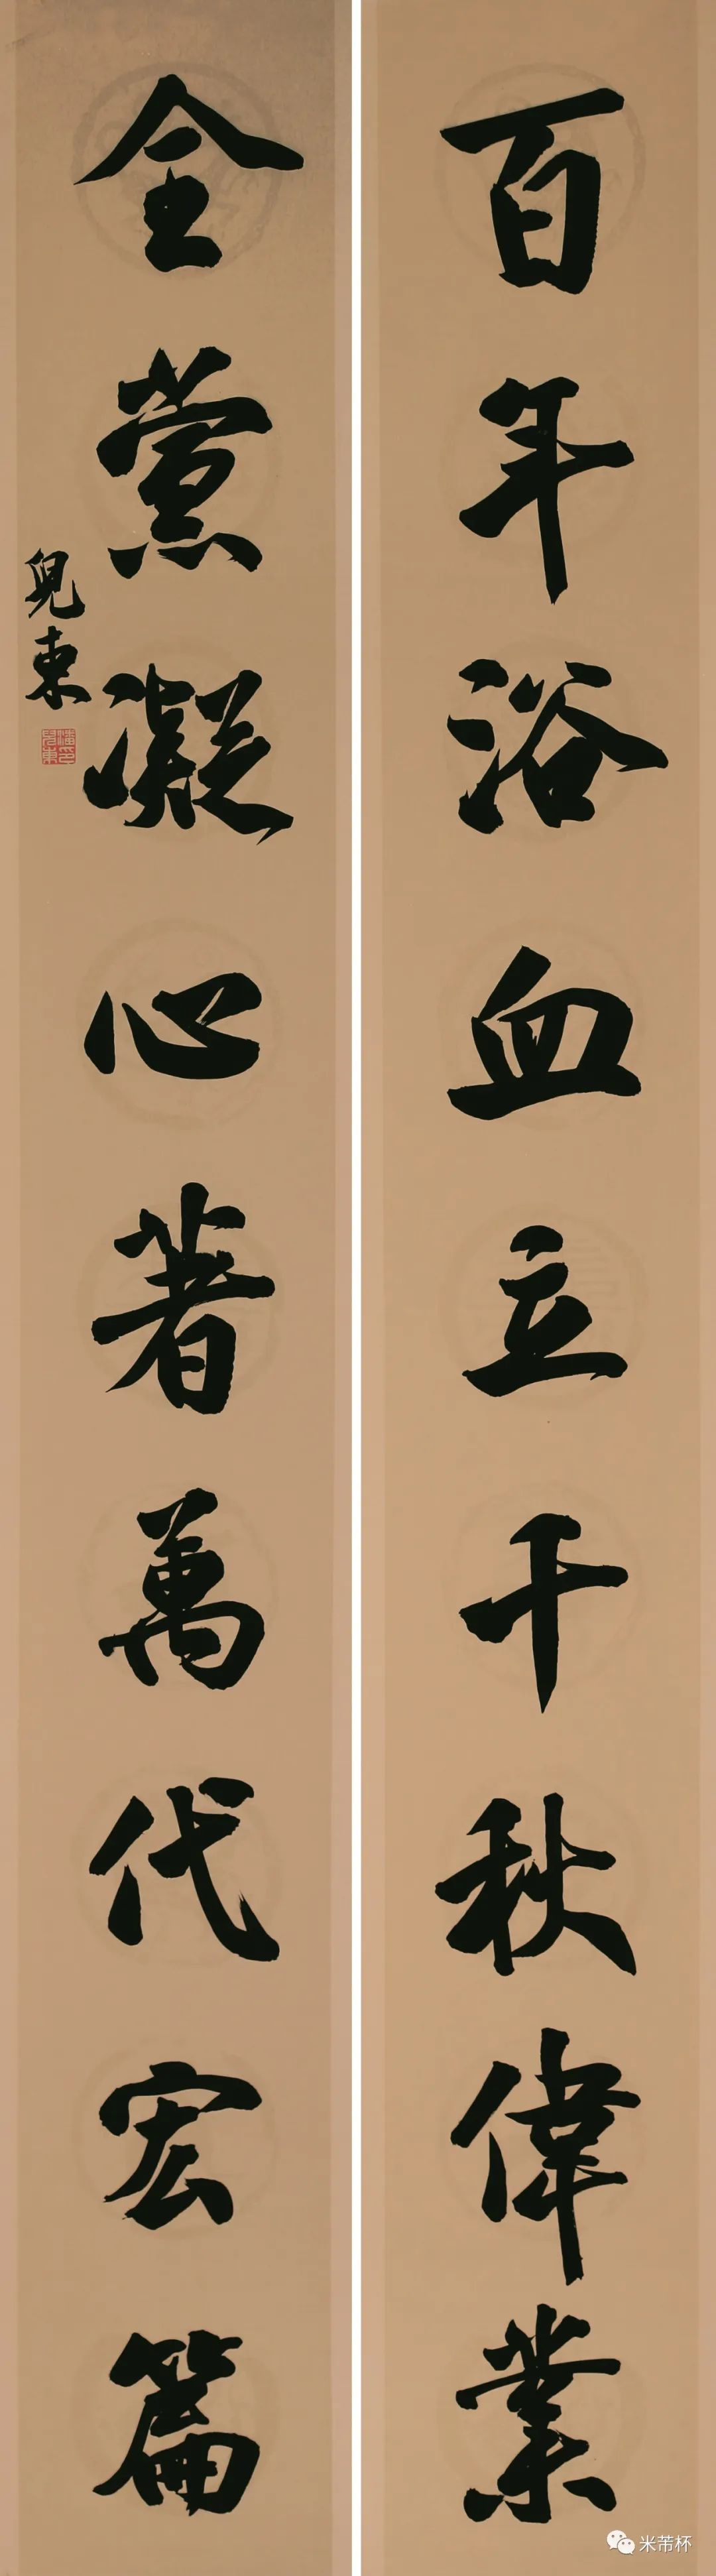 百年浴血立千秋偉業
全黨凝心著萬代宏篇
兒東
米芾杯